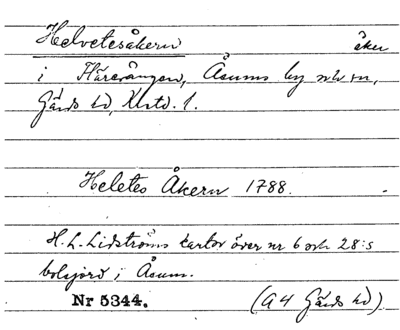 Helvetesåkern åker
i Häravången, Åsums by och sn,
Gärds hd, Krstd. l.
Heletes Åkern 1788.
H. L. Lidströms kartor över nr 6 och 28:s
bolsjord i Åsum.
Nr 5344. (A 4 Gärds hd)